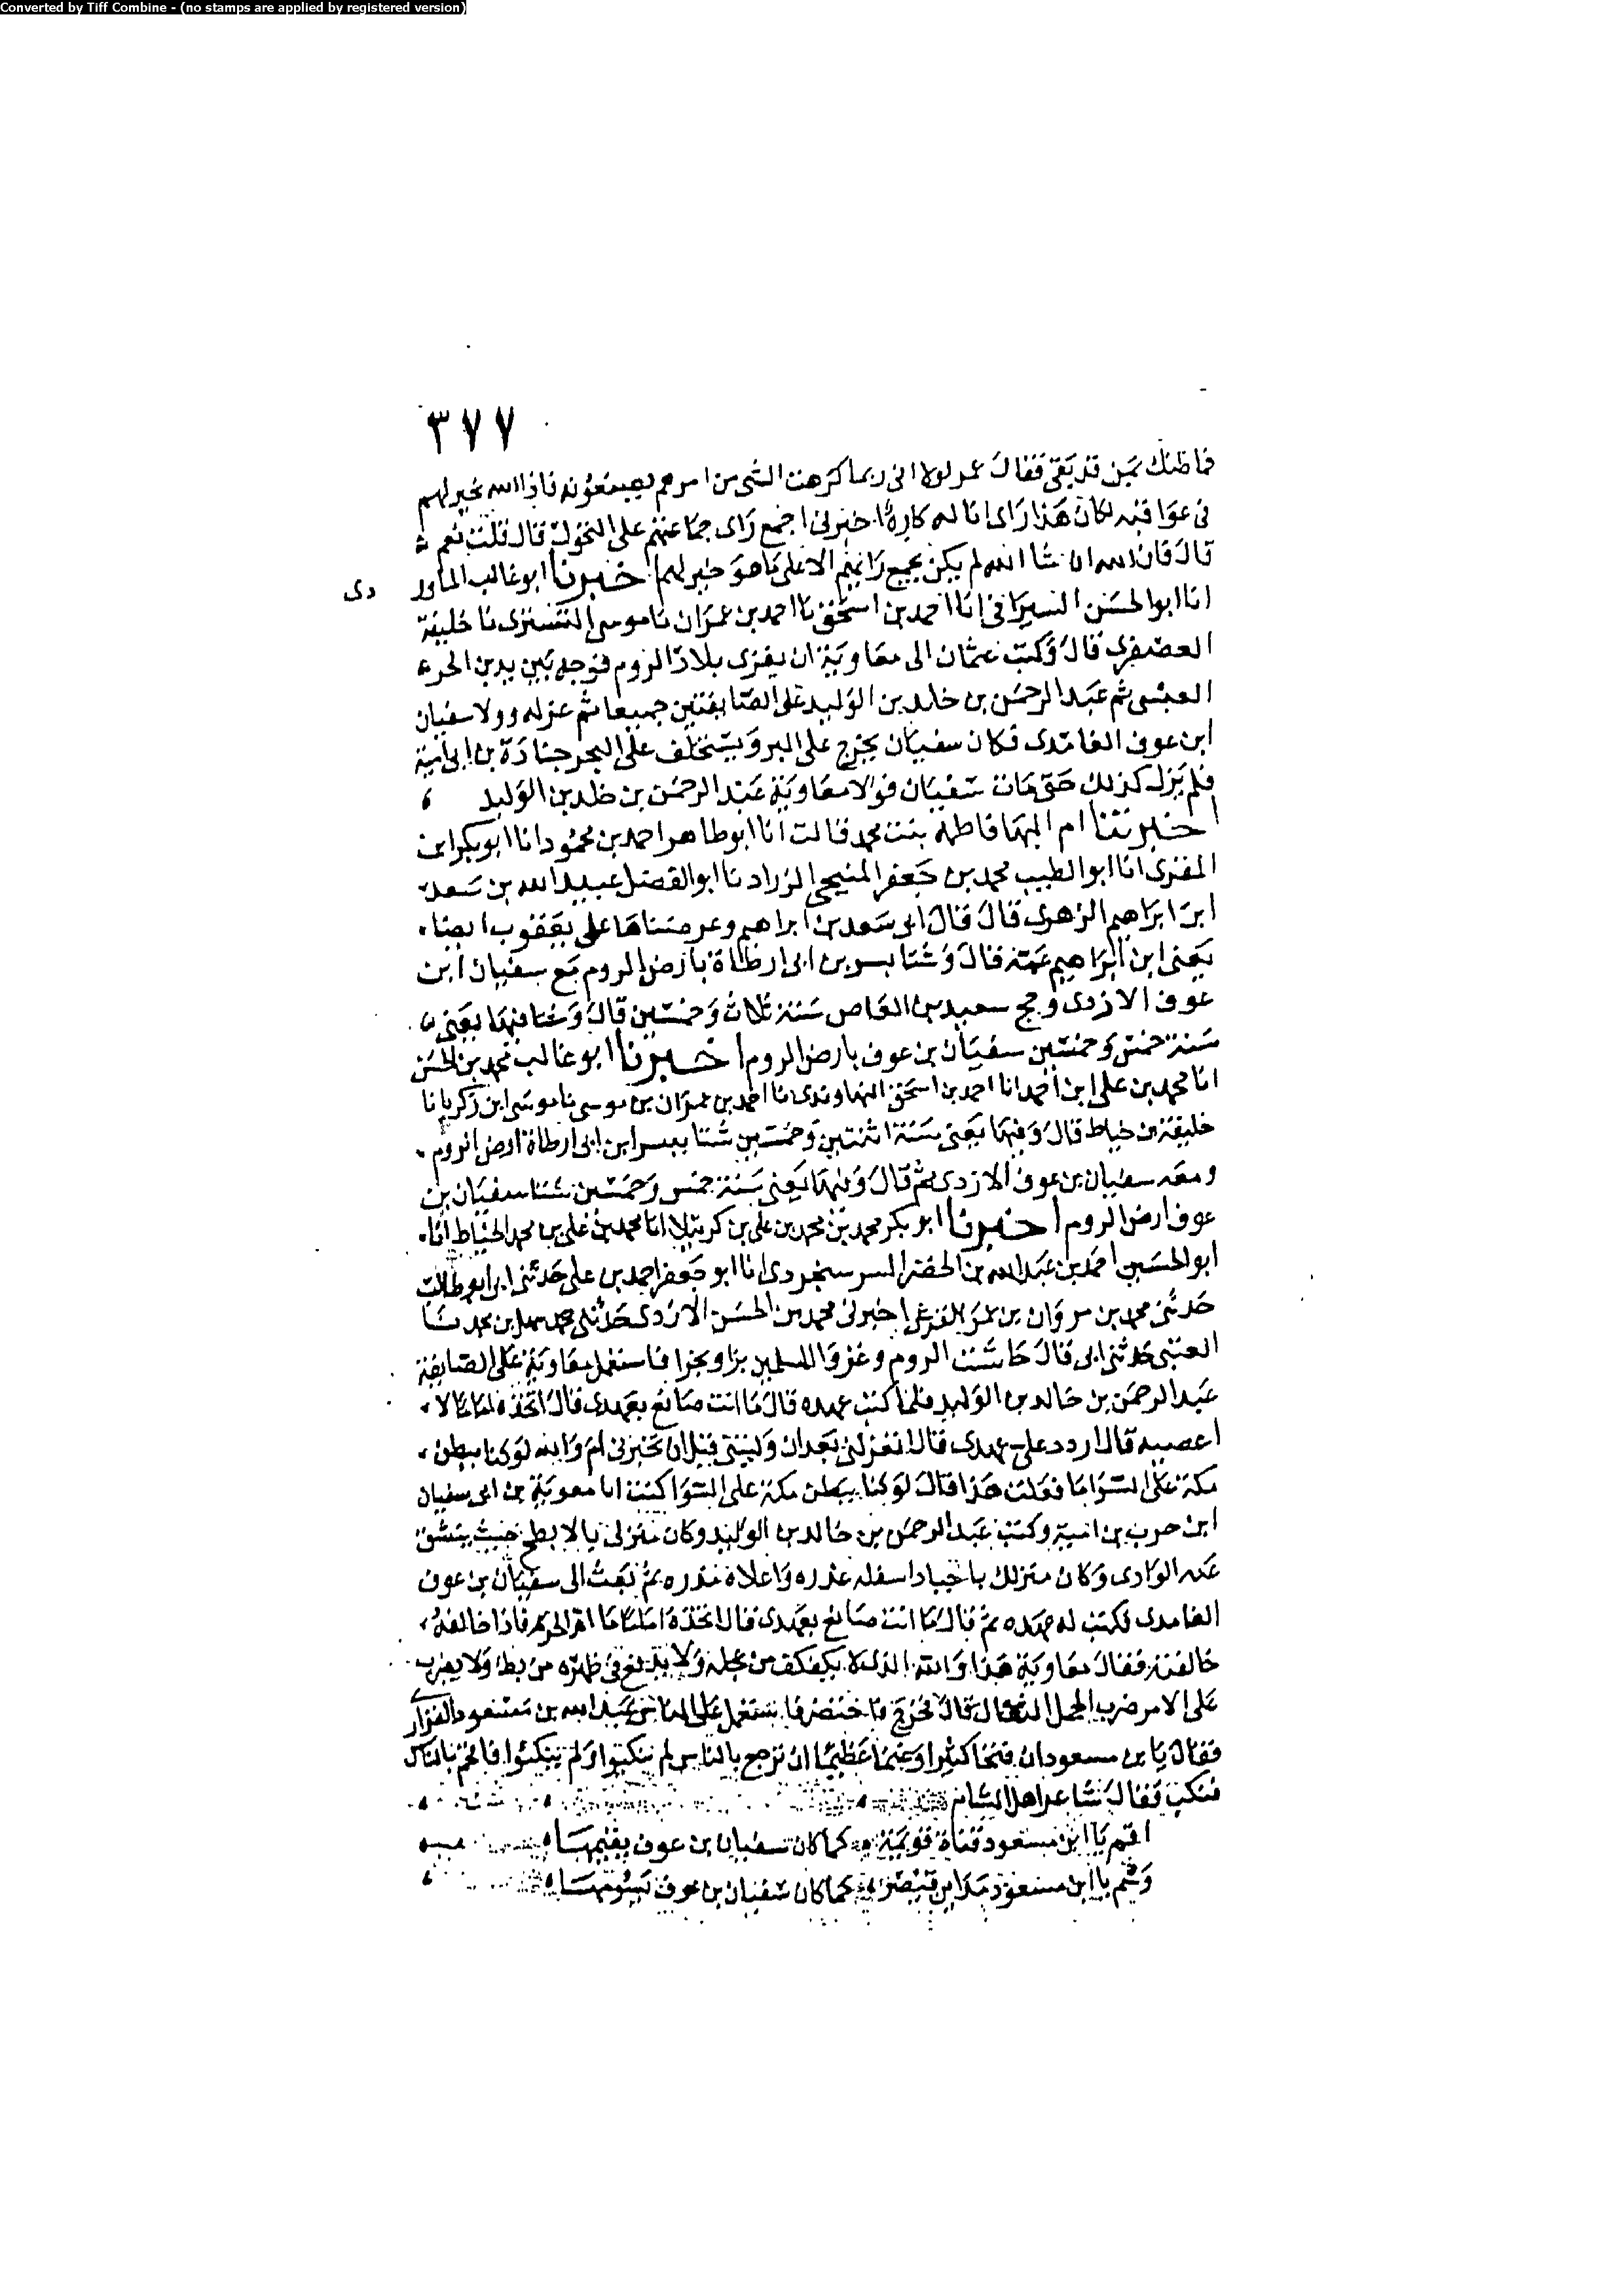 Converted by Tiff Combine - (no stamps are applied by registered version)
٣٧٧
فما ظنك بمن قد بقى فقال عمر لولا انى ربما كرهت الشى من امرهم يصنعونه فاذا الله بخير لهم
فى عواقبه لكان هذا راى انا له كاره اخبرنى اجمع راى جماعتهم على التحول قال قلت نعم
قال فان الله ان شا الله لم يكن يجمع رايهم الا على ما هو خير لهم اخبرنا ابو غالب الماور
دى
انا ابو الحسن السيرافى انا احمد بن اسحق نا احمد بن عمران نا موسى التسترى نا خليفة
العصفرى قال وكتب عثمان الى معاوية ان يغزى بلاد الروم فوجه يزيد بن الحر
العبسى ثم عبد الرحمن بن خالد بن الوليد على الصايفتين جميعا ثم عزله وولا سفيان
ابن عوف الغامدى فكان سفيان يخرج على البر ويستخلف على البحر جنادة بن ابى امية
فلم يزل كذلك حتى مات سفيان فولا معاوية عبد الرحمن بن خلد بن الوليد
اخبرتنا ام البها فاطمة بنت محمد قالت انا ابو طاهر احمد بن محمود انا ابو بكر ابن
المقرى انا ابو الطيب محمد بن جعفر المنبجى الزراد نا ابو الفضل عبيد الله بن سعد
ابن ابراهيم الزهرى قال قال ابى سعد بن ابراهيم وعرضناها على يعقوب ايضا
يعنى ابن ابراهيم عمه قال وشتا بسر بن ابى ارطاة بارض الروم مع سفيان ابن
عوف الازدى وحج سعيد بن العاص سنة ثلاث وخمسين قال وشتا فيها يعنى
سنة خمس وخمسين سفيان بن عوف بارض الروم اخبرنا ابو غالب محمد بن الحسن
انا محمد بن على ابن احمد انا احمد بن اسحق النهاوندى نا احمد بن عمران بن موسى نا موسى ابن زكريا نا
خليفة بن خياط قال وفيها يعنى سنة اثنتين وخمسين شتا بسر ابن ابى ارطاة ارض الروم
ومعه سفيان بن عوف الازدى ثم قال وفيها يعنى سنة خمس وخمسين شتا سفيان بن
عوف ارض الروم اخبرنا ابو بكر محمد بن محمد بن على بن كرتيلا انا محمد بن على بن محمد الخياط انا
ابو الحسين احمد بن عبد الله بن الخضر السوسنجردى انا ابو جعفر احمد بن على حدثنى ابى ابو طالب
حدثنى محمد بن مروان بن عمر القرشى اخبرنى محمد بن الحسن الازدى حدثنى محمد بن محمد نا
العتبى حدثنى ابى قال جاشت الروم وغزوا المسلمين برا وبحرا فاستعمل معاوية على الصايفة
عبد الرحمن بن خالد بن الوليد فلما كتب عهده قال ما انت صانع بعهدى قال اتخذه اماما لا
اعصيه قال اردد على عهدى قال اتعزلنى بعد ان وليتنى قبل ان تخبرنى ام والله لو كنا ببطن
مكة على السوا ما فعلت هذا قال لو كنا ببطن مكة على السوا كنت انا معوية بن ابى سفيان
ابن حرب بن امية وكنت عبد الرحمن بن خالد بن الوليد وكان منزلى بالابطح حيث ينشق
عنه الوادى وكان منزلك باجياد اسفله عذره واعلاه مدره ثم بعث الى سفيان بن عوف
الغامدى فكتب له عهده ثم قال ما انت صانع بعهدى قال اتخذه اماما ما ام الحزم فاذا خالفه
خالفته فقال معاوية هذا والله الذى لا يكفكف من عجلة ولا يدفع فى ظهره من بطؤ ولا يضرب
على الامر ضرب الجمل الثفال قال فخرج فاحتضر فاستعمل على الناس عبد الله بن مسعود الفزارى
فقال يا بن مسعود ان فتحا كثيرا وغنما عظيما ان ترجع بالناس لم ينكبوا ولم ينكئوا فاقحم بالناس
فنكب فقال شاعر اهل الشام
اقم يا ابن مسعود قناة قويمة كما كان سفيان بن عوف يقيمها
وسم يا ابن مسعود مداين قيصر كما كان سفيان بن عوف يسومها